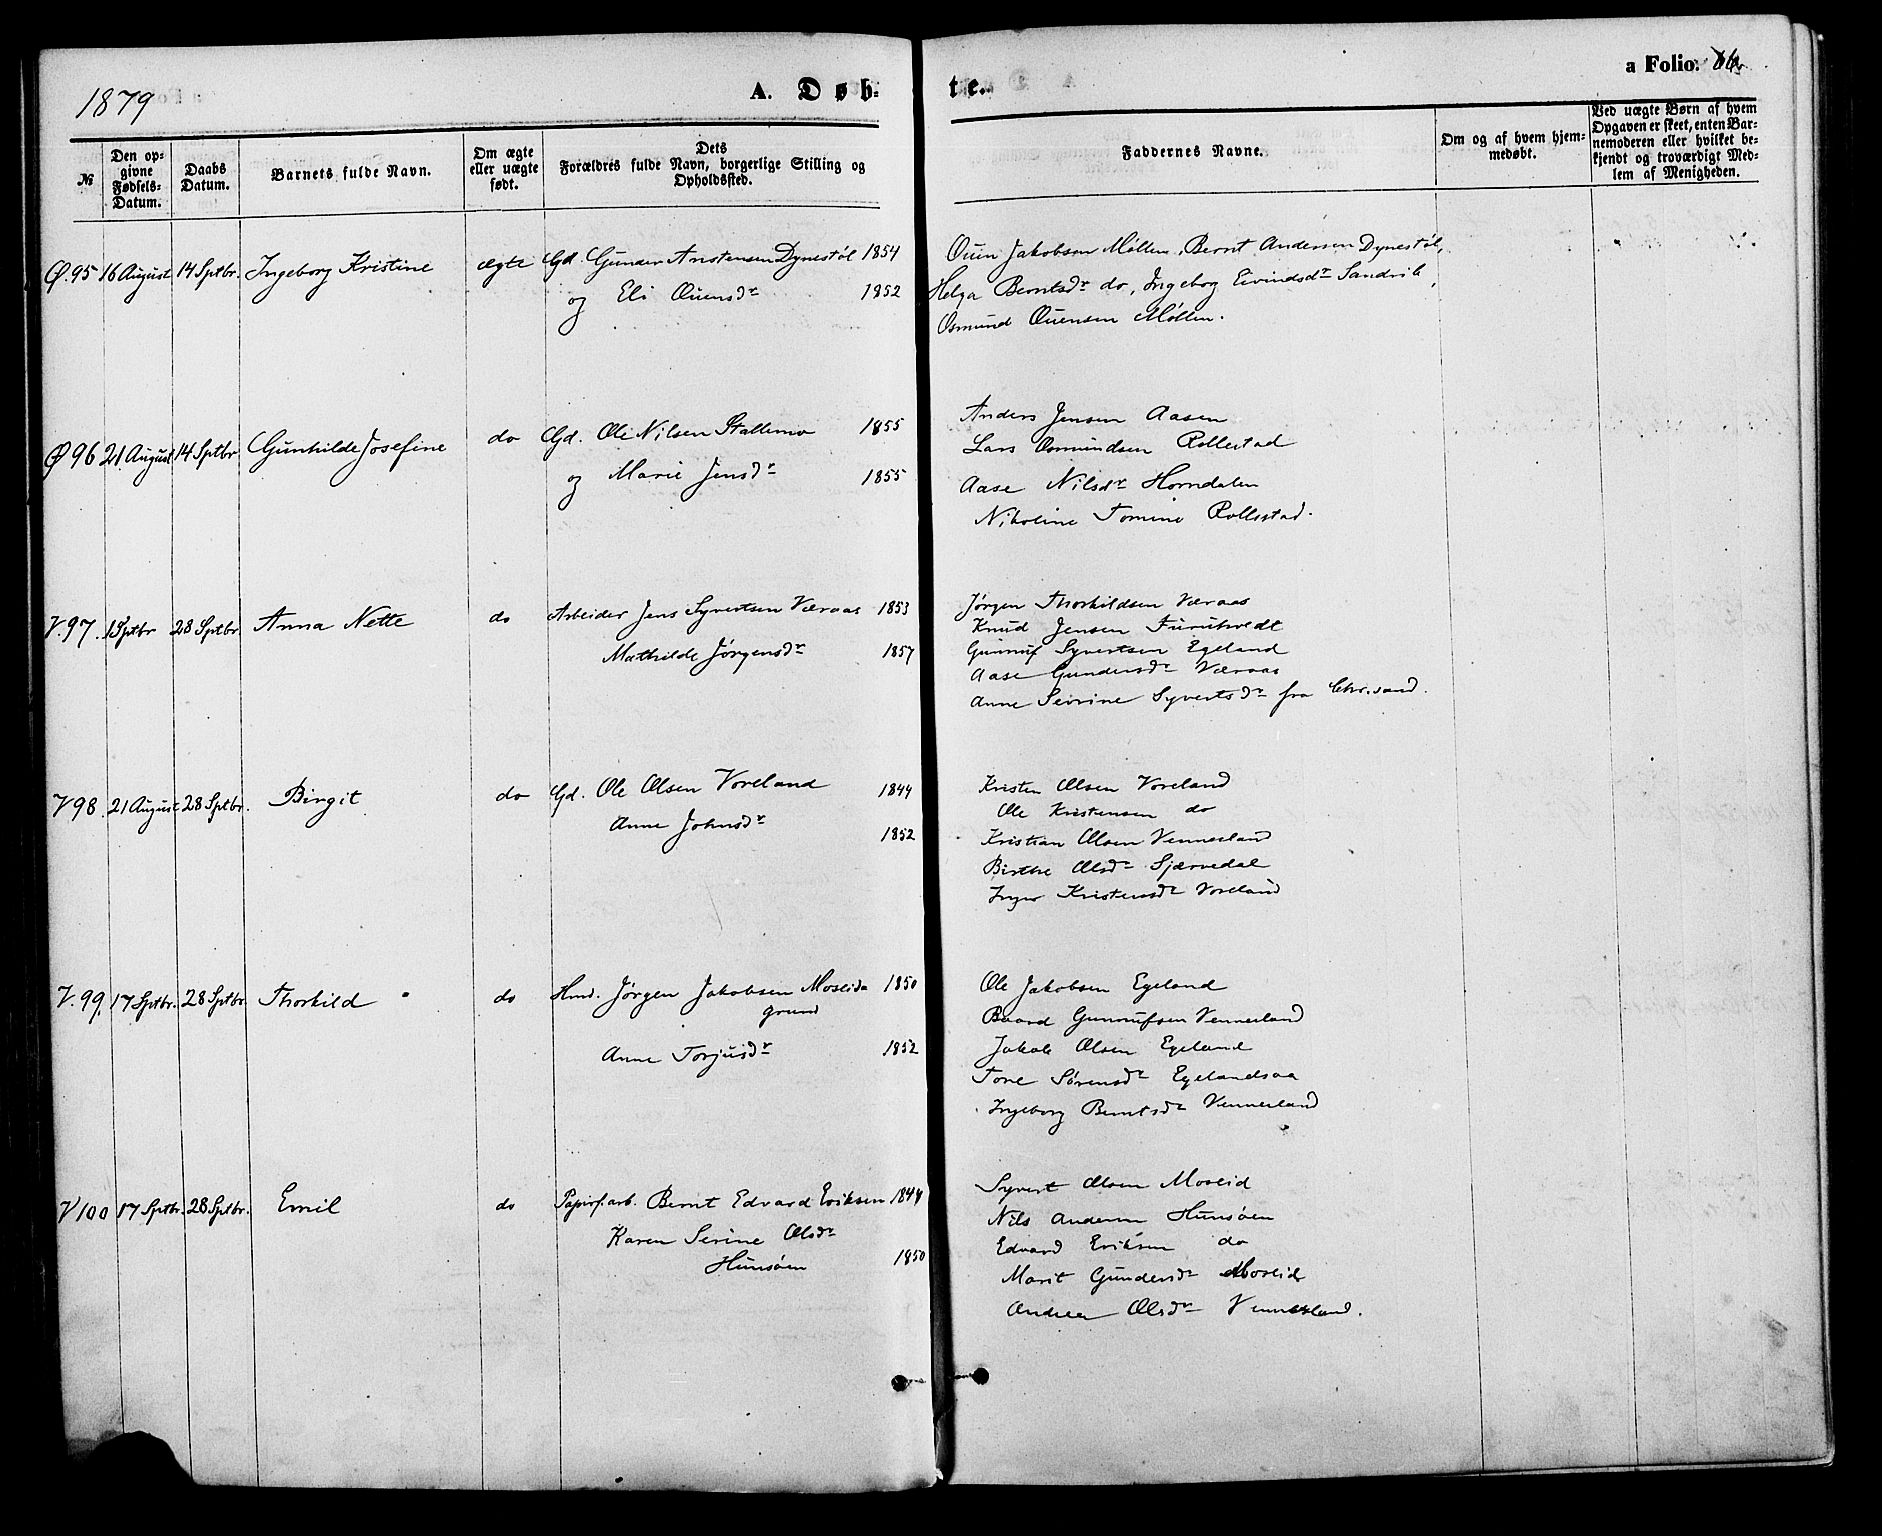 1879
A. Døb-
te.
a Folio.
№
Den op-
givne
Fødsels-
Datum.
Daabs
Datum.
Barnets fulde Navn.
Om ægte
eller uægte
født.
Dets
Forældres fulde Navn, borgerlige Stilling og
Opholdssted.
Faddernes Navne.
Om og af hvem hjem-
medøbt.
Ved uægte Børn af hvem
Opgaven er skeet, enten Bar-
nemoderen eller hvilket be-
kjendt og troværdigt Med-
lem af Menigheden.
Ø.95 16 August 14 Sptbr. Ingeborg Kristine ægte Gd. Gunder Anstensen Dynestøl 1854
og Eli Ouensdr 1852
Ouen Jakobsen Møllen, Bernt Andersen Dynestøl,
Helga Berntsdr do, Ingeborg Eivindsdr Sandrib,
Osmund Ouensen Møllen.
Ø 96 21 August 14 Sptbr Gunhilde Josefine do Gd. Ole Nilsen Stallemo 1855
og Marie Jensdr 1855
Anders Jensen Aasen
Lars Osmundsen Rollestad
Aase Nilsdr Homdalen
Nikoline Tomine Rollestad.
V.97. 1 Sptbr 28 Sptbr. Anna Nette do Arbeider Jens Syvertsen Væraas 1853
Mathilde Jørgensdr 1857
Jørgen Thorkildsen Væraas
Knud Jensen Furuhvedt
Gunnuf Syvertsen Egeland
Aase Gundersdr Væraas
Anne Sevrine Syvertsdr fra Chr.sand.
V98. 21 August 28 Sptbr. Birgit do Gd. Ole Olsen Voreland 1844
Anne Johnsdr
1852
Kristen Olsen Voreland
Ole Kristensen do
Kristian Olsen Vennesland
Birthe Olsdr Sjævedal
Inger Kristensdr Voreland
V.99. 17 Sptbr. 28 Sptbr. Thorkild do Hmd. Jørgen Jakobsen Moseid 1850
grund
Anne Torjusdr 1852
Ole Jakobsen Egeland
Baard Gunnufsen Vennesland
Jakob Olsen Egeland
Tone Sørensdr Egelandsaa
Ingeborg Berntsdr Vennesland
V 100 17 Sptbr. 28 Sptbr. Emil do Papirf.arb. Bernt Edvard Eriksen 1844
Karen Serine Olsdr
Hunsøen 1850
Syvert Olsen Moseid
Nils Andersen Hunsøen
Edvard Eriksen do
Marit Gundersdr Moseid
Andrea Olsdr Vennesland.